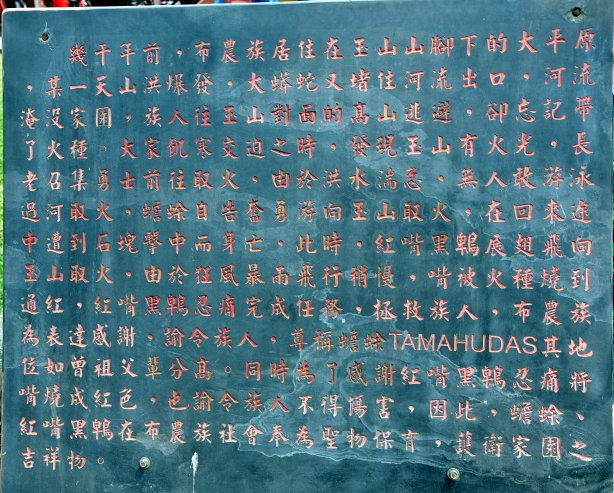 幾千年前，布農族居住在玉山山腳下的大平原
，某一天山洪爆發，大蟒蛇又堵住河流出口，河流
淹沒家園，族人往玉山對面的高山逃避，卻忘記帶
了火種。大家飢寒交迫之時，發現玉山有火光，長
老召集勇士前往取火，由於洪水湍急，無人敢游泳
過河取火，蟾蜍自告奮勇游向玉山取火，在回來途
中遭到石塊擊中而身亡，此時，紅嘴黑鵯展翅飛向
玉山取火，由於狂風暴雨飛行稍慢，嘴被火種燒到
通紅，紅嘴黑鵯忍痛完成任務，極救族人，布農族
為表達感謝，諭令族人，尊稱蟾蜍TAMAHUDAS其地
位如曾祖父輩分高。同時為了感謝紅嘴黑鵯忍痛將
嘴燒成紅色，也諭令族人不得傷害，因此，蟾蜍、
紅嘴黑鵯在布農族社會奉為聖物保育，護衛家園之
吉祥物。